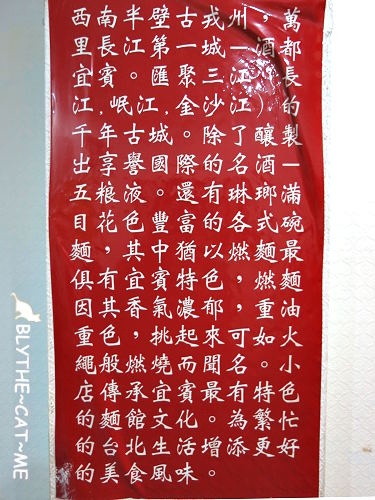 西南半壁古戎州，萬
里長江第一城一酒都
宜賓。匯聚三江(長
江,岷江,金沙江)的
千年古城。除了釀製
出享譽國際的名酒一
五粮液。還有琳瑯滿
目花色豐富的各式碗
麵，其中猶以燃麵最
俱有宜賓特色，燃麵
因其香氣濃郁，重油
重色，挑起來可如火
繩般燃燒而聞名。小
店傳承宜賓最有特色
的麵館文化。為繁忙
的台北生活增添更好
的美食風味。
BLYTHE~CAT~ME